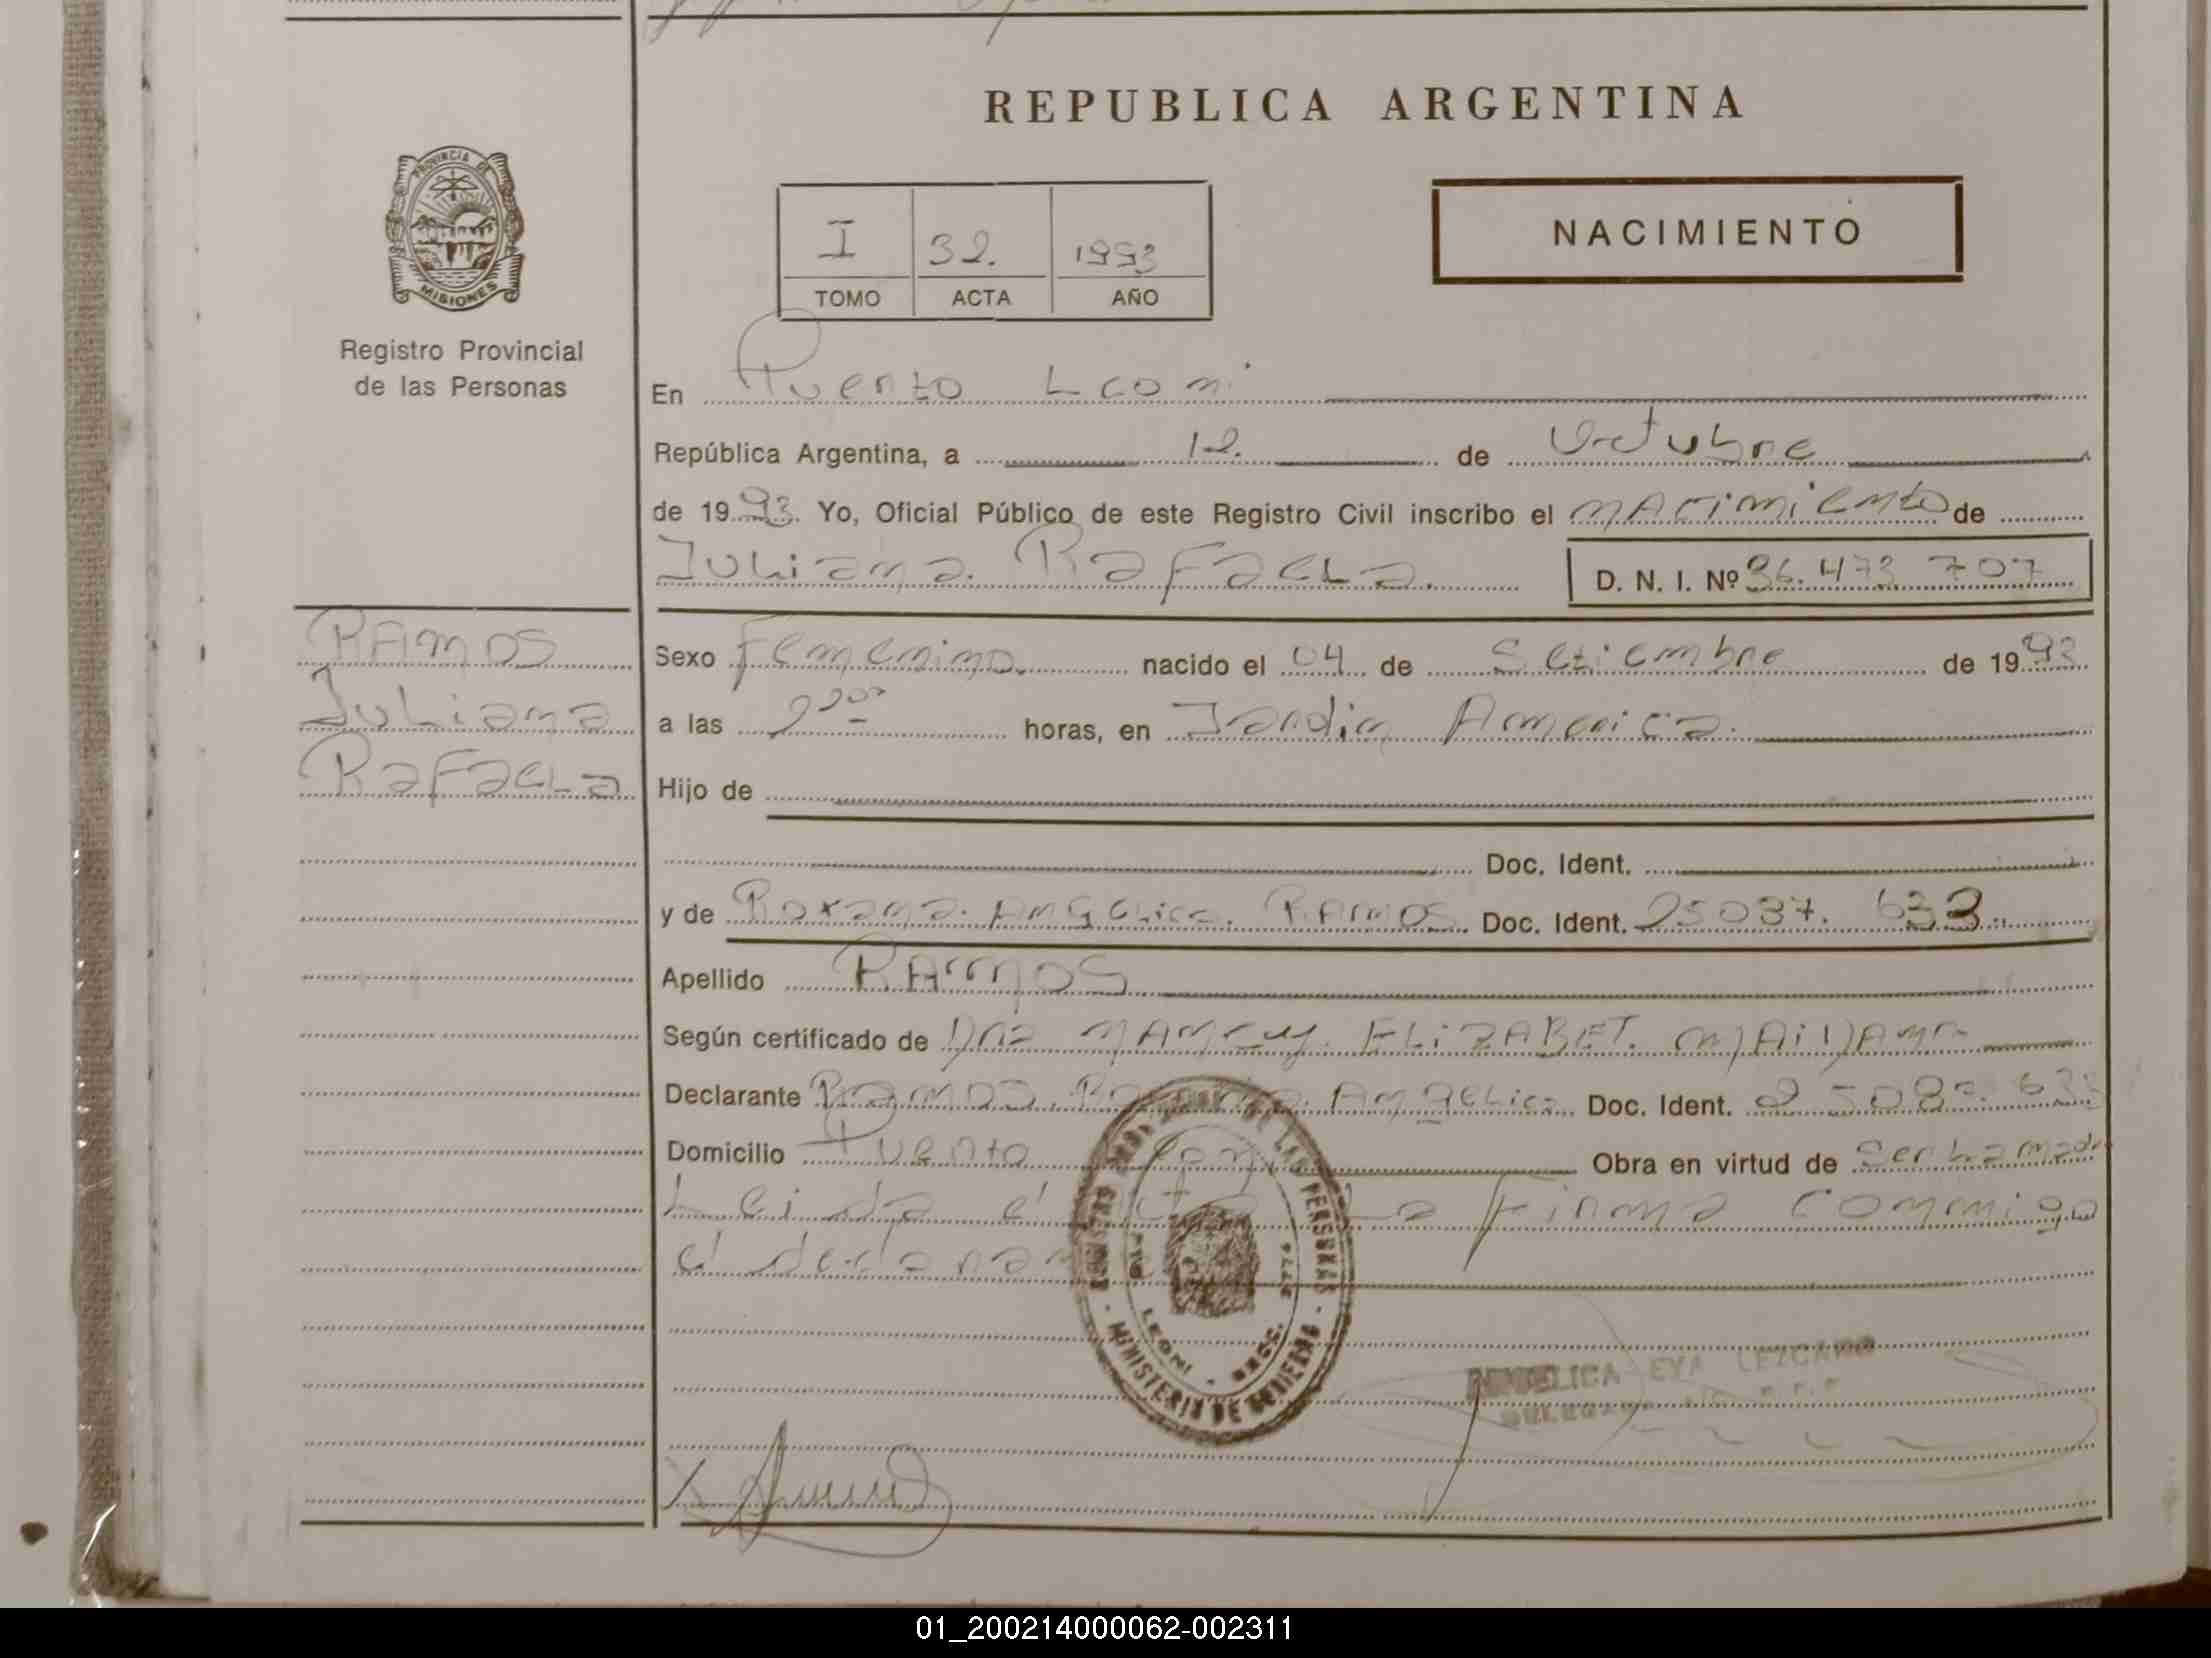 REPUBLICA ARGENTINA
PROVINCIA DE
MISIONES
Registro Provincial
de las Personas
NACIMIENTO
I 32. 1993
TOMO ACTA AÑO
En Puerto Leoni
República Argentina, a 12. de Octubre
de 1993. Yo, Oficial Público de este Registro Civil inscribo el nacimiento de
Juliana Rafaela.
D. N. I. Nº 36.473 707
RAMOS
Juliana
Rafaela
Sexo Femenino. nacido el 04 de Setiembre de 1993
a las horas, en Jardin America.
Hijo de
Doc. Ident.
y de Roxana Angelica. RAMOS. Doc. Ident. 25037. 633
Apellido RAMOS
Según certificado de Dra NANCY. ELIZABET.
Declarante Ramos. Angelica Doc. Ident.
Domicilio Puerto Obra en virtud de Ser La madre
Leida el La Firma Conmigo
el
LAS PERSONAS
MINISTERIO DE GOBIERNO
PTO LEONI
EVA LEZCANO
01_200214000062-002311